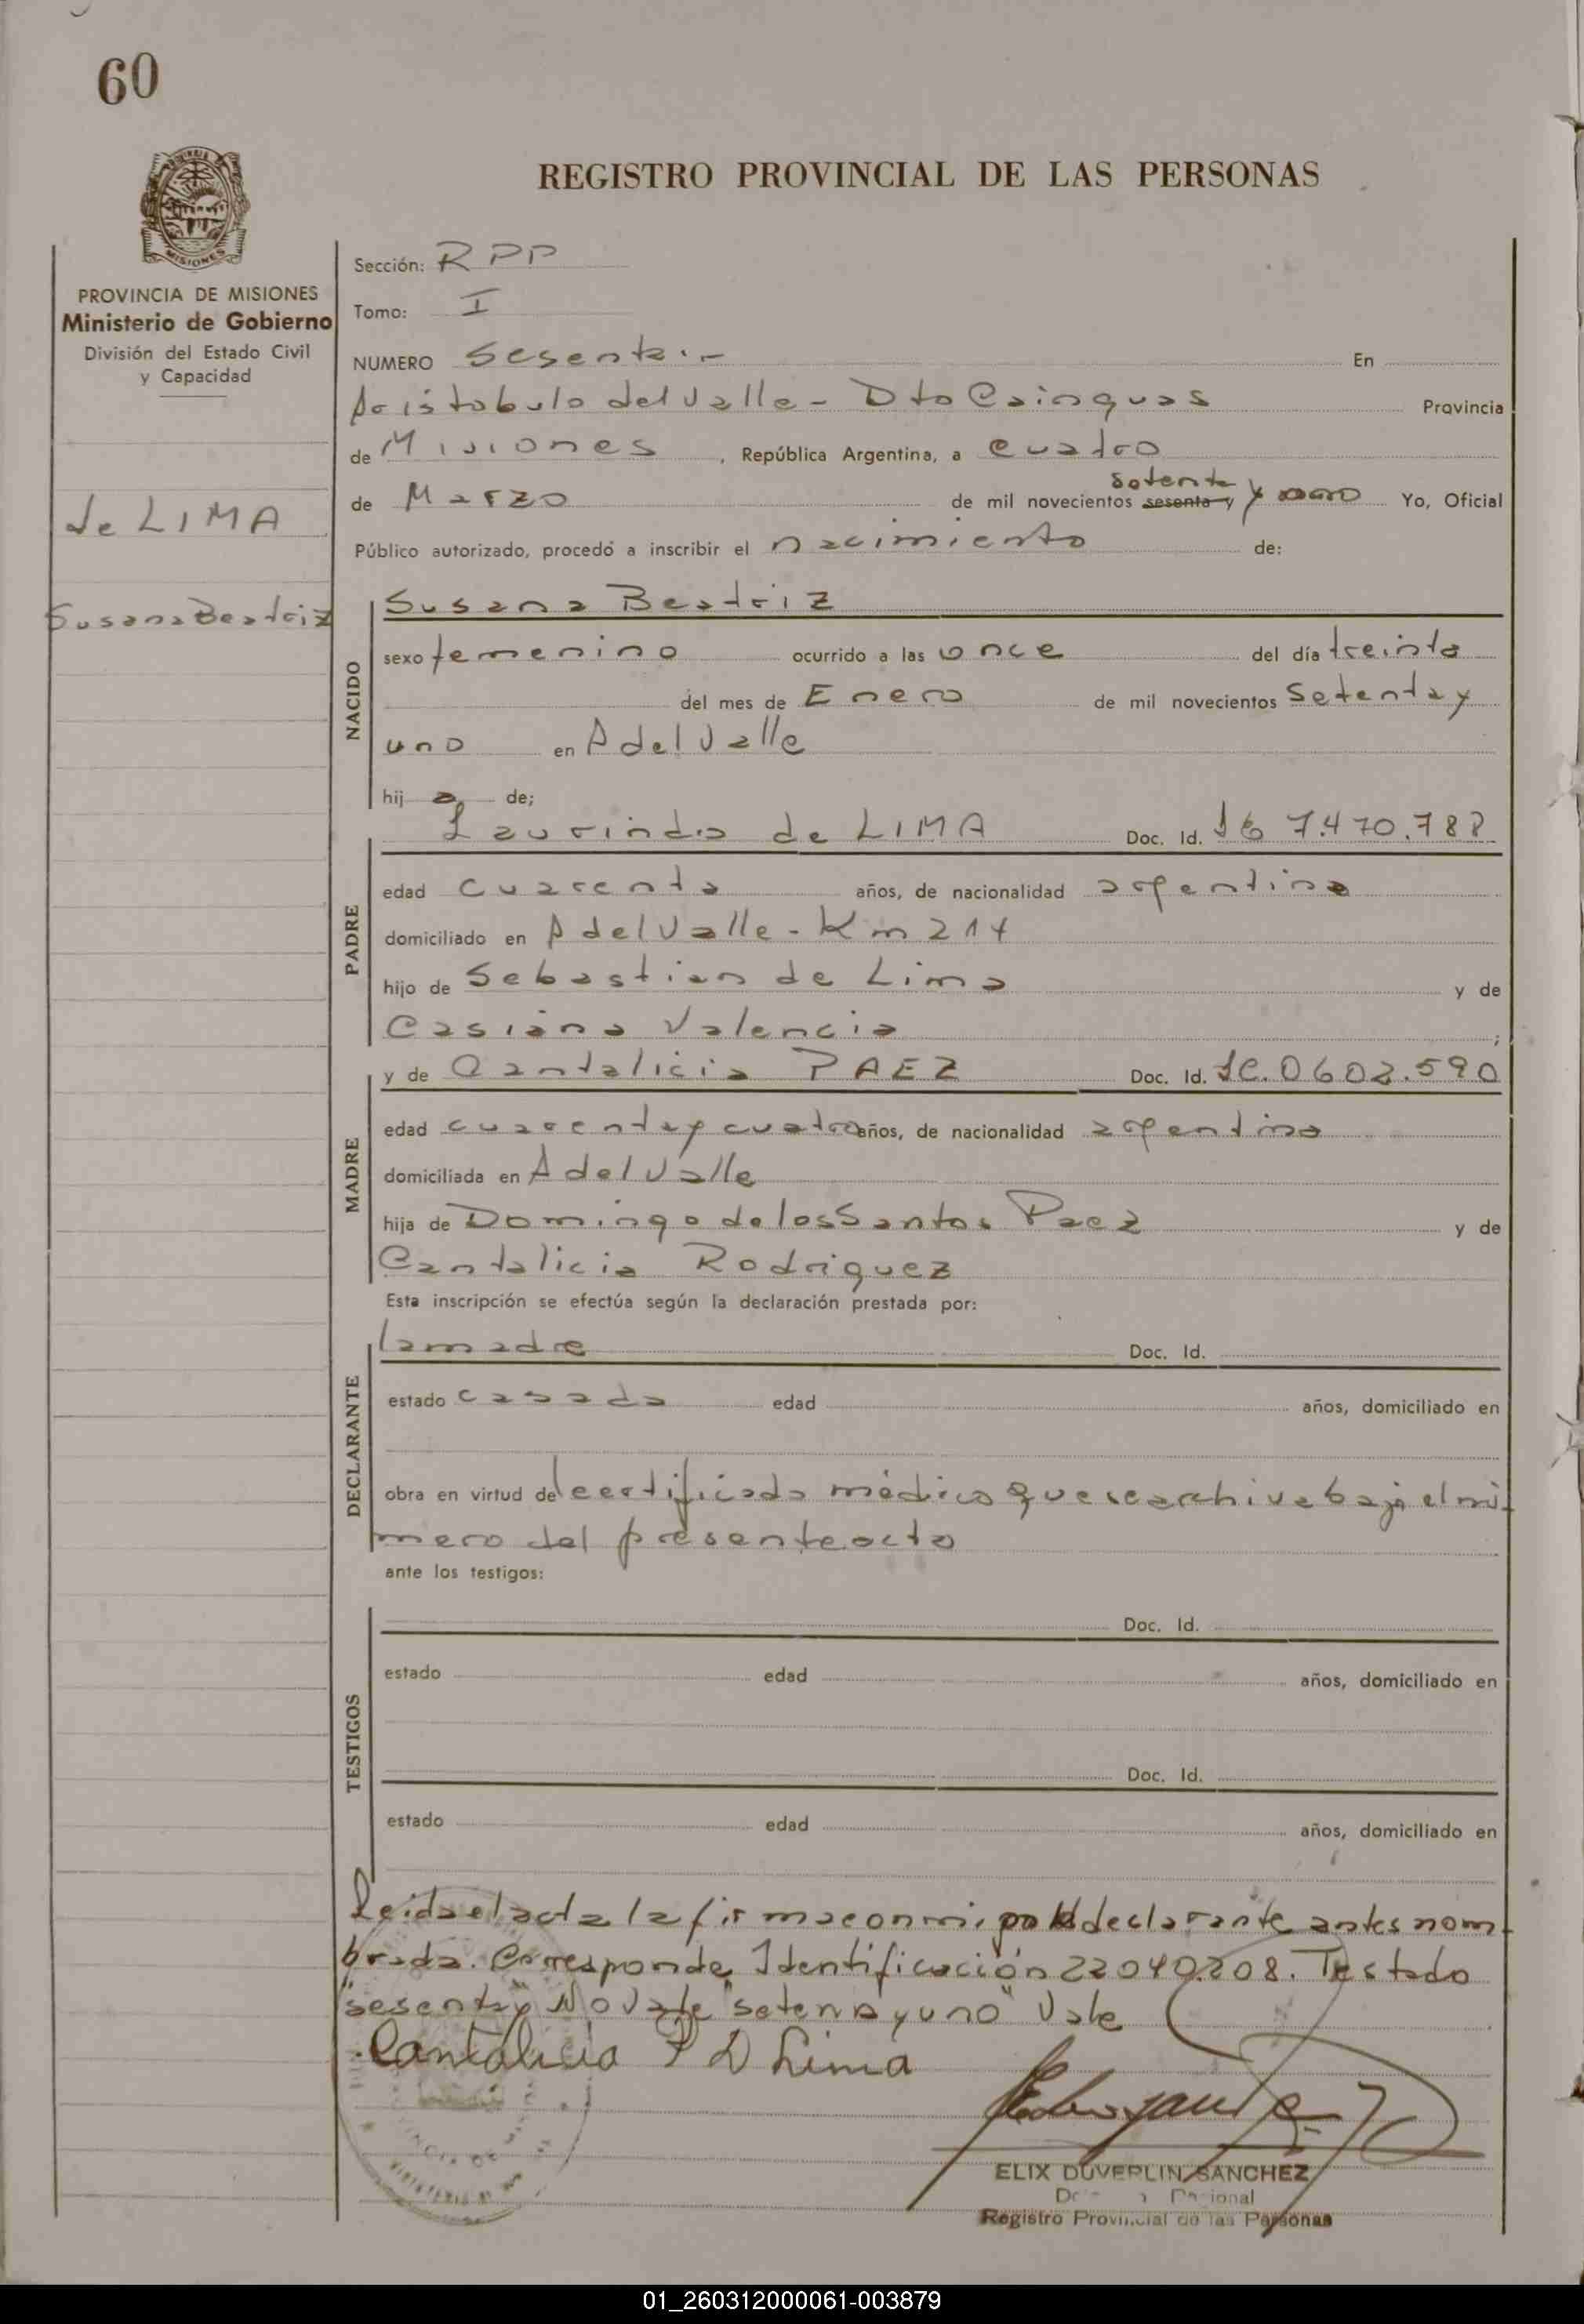 60
REGISTRO PROVINCIAL DE LAS PERSONAS
MISIONES
PROVINCIA DE MISIONES
Ministerio de Gobierno
División del Estado Civil
y Capacidad
de LIMA
Susana Beatriz
Sección: RPP
Tomo: I
NUMERO Sesenta.- En
Aristobulo del Valle - Dto Cainguas Provincia
de Misiones, República Argentina, a cuatro
setenta
de Marzo de mil novecientos sesenta y y uno Yo, Oficial
Público autorizado, procedo a inscribir el nacimiento de:
NACIDO
Susana Beatriz
sexo femenino ocurrido a las once del día treinta
del mes de Enero de mil novecientos setenta y
uno en A del Valle
hij a de;
PADRE
Laurindo de LIMA Doc. Id. 7.470.788
edad cuarenta años, de nacionalidad argentina
domiciliado en A del Valle - Km 214
hijo de Sebastian de Lima y de
Casiana Valencia ;
MADRE
y de Cantalicia PAEZ Doc. Id. 0602.590
edad cuarenta y cuatro años, de nacionalidad argentina
domiciliada en A del Valle
hija de Domingo de los Santos Paez y de
Cantalicia Rodriguez
Esta inscripción se efectúa según la declaración prestada por:
DECLARANTE
la madre Doc. Id.
estado casada edad años, domiciliado en
obra en virtud del certificado médico que se archiva bajo el nú-
mero del presente acta
ante los testigos:
TESTIGOS
Doc. Id.
estado edad años, domiciliado en
Doc. Id.
estado edad años, domiciliado en
Leida el acta la firma conmigo la declarante antes nom-
brada. Corresponde Identificación 22040.208. Testado
"sesenta y" No Vale "setena y uno" Vale
Cantalicia P D Lima
ELIX DUVERLIN SANCHEZ
Registro Provincial de las Personas
01_260312000061-003879